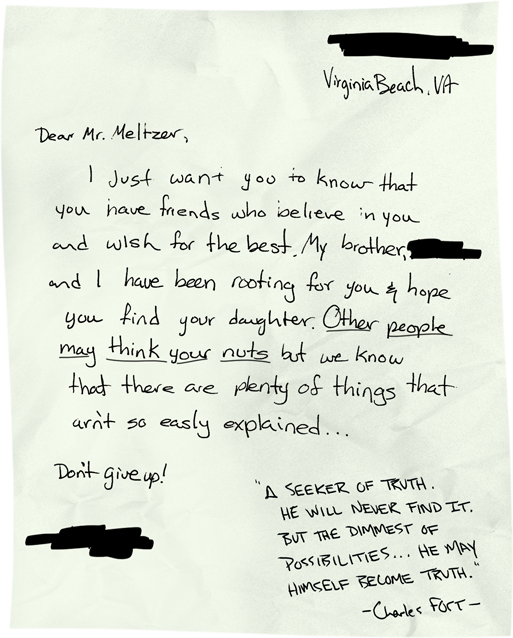 Virginia Beach, VA
Dear Mr. Meltzer,
I Just want you to know that
you have friends who believe in you
and wish for the best. My brother,
and I have been rooting for you & hope
you find your daughter. Other people
may think your nuts but we know
that there are plenty of things that
arn't so easly explained...
Don't give up!
"A SEEKER OF TRUTH.
HE WILL NEVER FIND IT.
BUT THE DIMMEST OF
POSSIBILITIES... HE MAY
HIMSELF BECOME TRUTH."
-Charles FORT-